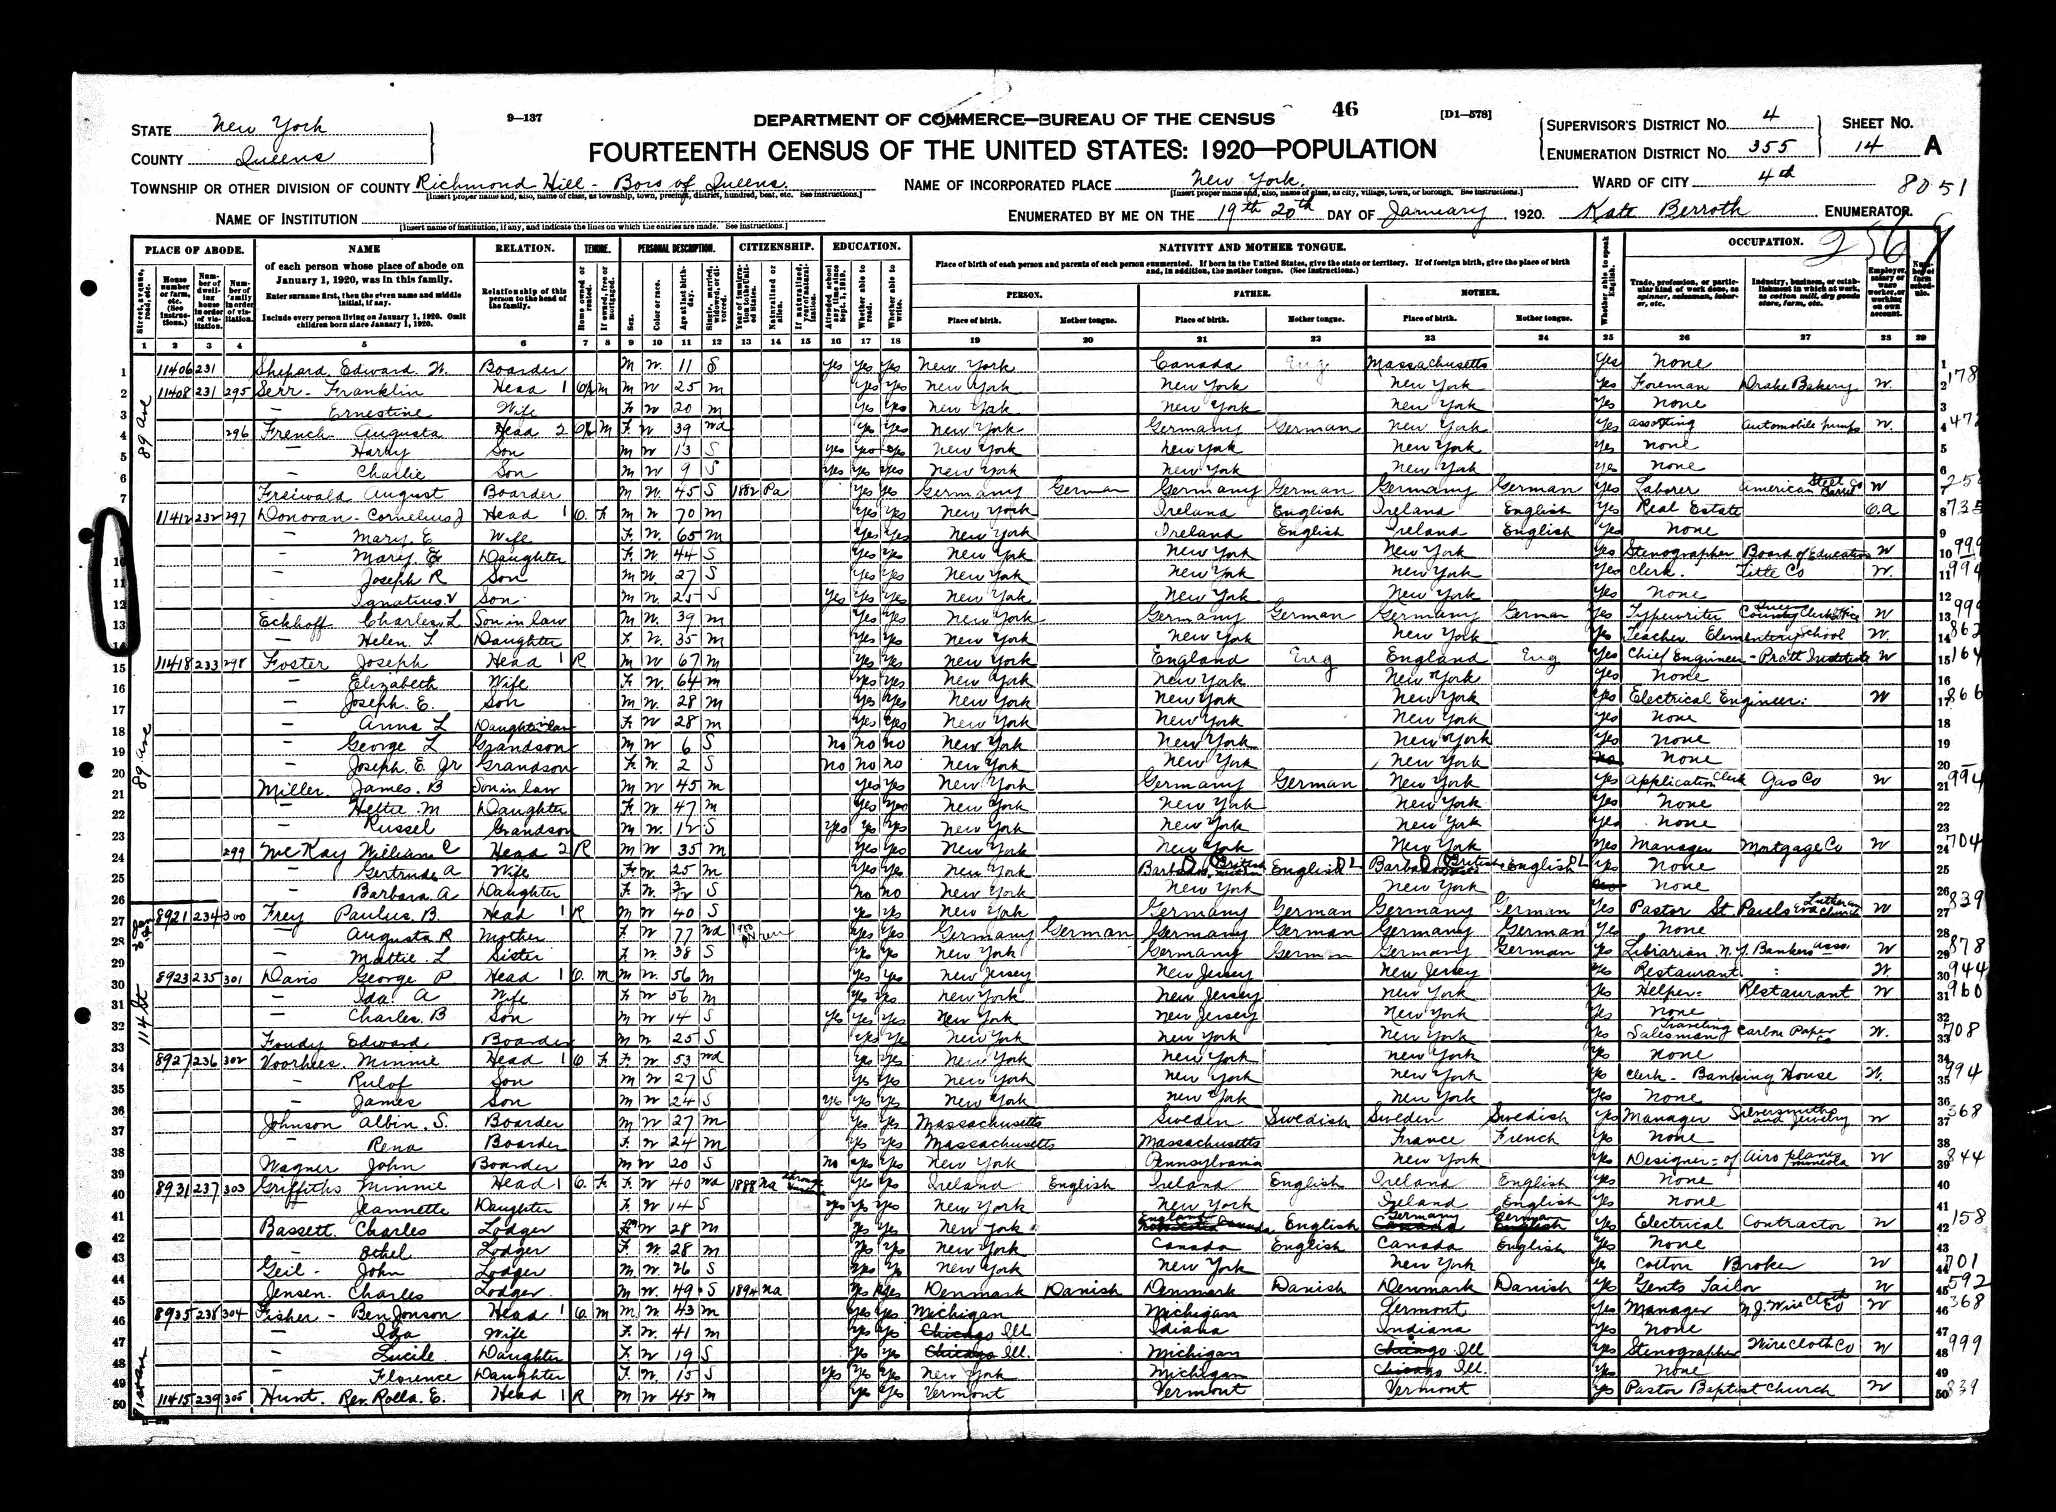 46
9—137
DEPARTMENT OF COMMERCE—BUREAU OF THE CENSUS
[D1—578]
FOURTEENTH CENSUS OF THE UNITED STATES: 1920—POPULATION
STATE New York
COUNTY Queens
SUPERVISOR'S DISTRICT No. 4
ENUMERATION DISTRICT No. 355
SHEET No. 14 A
TOWNSHIP OR OTHER DIVISION OF COUNTY Richmond Hill - Boro of Queens.
[Insert proper name and, also, name of class, as township, town, precinct, district, hundred, beat, etc. See instructions.]
NAME OF INCORPORATED PLACE New York.
[Insert proper name and, also, name of class, as city, village, town, or borough. See instructions.]
WARD OF CITY 4th
8051
NAME OF INSTITUTION
[Insert name of institution, if any, and indicate the lines on which the entries are made. See instructions.]
ENUMERATED BY ME ON THE 19th 20th DAY OF January, 1920. Kate Berroth ENUMERATOR.
PLACE OF ABODE. NAME RELATION. TENURE. PERSONAL DESCRIPTION. CITIZENSHIP. EDUCATION. NATIVITY AND MOTHER TONGUE. OCCUPATION.
of each person whose place of abode on January 1, 1920, was in this family.
Enter surname first, then the given name and middle initial, if any.
Include every person living on January 1, 1920. Omit children born since January 1, 1920.
Relationship of this person to the head of the family.
Place of birth of each person and parents of each person enumerated. If born in the United States, give the state or territory. If of foreign birth, give the place of birth and, in addition, the mother tongue. (See instructions.)
PERSON. FATHER. MOTHER.
Place of birth. Mother tongue. Place of birth. Mother tongue. Place of birth. Mother tongue.
1 2 3 4 5 6 7 8 9 10 11 12 13 14 15 16 17 18 19 20 21 22 23 24 25 26 27 28 29
1 11406 231 Shepard Edward W. Boarder M W. 11 S Yes Yes Yes New York Canada Eng Massachusetts Yes None
2 11408 231 295 Serr - Franklin Head 1 M M W 25 M Yes Yes New York New York New York Yes Foreman Drake Bakery W. 178
3 — Ernestine Wife F W 20 M Yes Yes New York New York New York Yes None
4 296 French Augusta Head 2 M F. W 39 Wd Yes Yes New York Germany German New York Yes Automobile pumps W.
5 — Harry Son M W 13 S Yes Yes Yes New York New York New York Yes None
6 — Charlie Son M W 9 S Yes Yes Yes New York New York New York Yes None
7 Freiwald August Boarder M W. 45 S 1882 Pa Yes Yes Germany German Germany German Germany German Yes Laborer American Steel Barrel Co W
8 11412 232 297 Donovan - Cornelius J Head 1 O. F M W 70 M Yes Yes New York Ireland English Ireland English Yes Real Estate O.A 735
9 — Mary E Wife F. W. 65 M Yes Yes New York Ireland English Ireland English Yes None
10 — Mary. E Daughter F. W. 44 S Yes Yes New York New York New York Yes Stenographer Board of Education W 999
11 — Joseph R Son M W. 27 S Yes Yes New York New York New York Yes Clerk. Title Co W. 994
12 — Ignatius. V Son M W. 25 S Yes Yes Yes New York New York New York Yes None
13 Eckhoff Charles. L Son in law M W. 39 M Yes Yes New York Germany German Germany German Yes Typewriter Queens County Clerks Office W 999
14 — Helen. F. Daughter F. W. 35 M Yes Yes New York New York New York Yes Teacher Elementary School W. 862
15 11418 233 298 Foster Joseph Head 1 R M W 67 M Yes Yes New York England Eng England Eng Yes Chief Engineer - Pratt Institute W 164
16 — Elizabeth Wife F W. 64 M Yes Yes New York New York New York Yes None
17 — Joseph. E. Son M W. 28 M Yes Yes New York New York New York Yes Electrical Engineer. W 866
18 — Anna L Daughter in law F W 28 M Yes Yes New York New York New York Yes None
19 — George L Grandson M W 6 S No No No New York New York New York Yes None
20 — Joseph. E. Jr Grandson W. 2 S No No No New York New York New York None
21 Miller James. B Son in law M W 45 M Yes Yes New York Germany German New York Yes Application Clerk Gas Co W 994
22 — Hettie. M Daughter F W 47 M Yes Yes New York New York New York Yes None
23 — Russel Grandson M W. 12 S Yes Yes Yes New York New York New York Yes None
24 299 McKay William C Head 2 R M W 35 M Yes Yes New York New York New York Yes Manager Mortgage Co W 704
25 — Gertrude A Wife F W. 25 M Yes Yes New York British English British English Yes None
26 — Barbara. A Daughter F. W. S No No New York New York New York None
27 8921 234 300 Frey Paulus. B. Head 1 R M W 40 S Yes Yes New York Germany German Germany German Yes Pastor St. Pauls Lutheran Church W 839
28 — Augusta R Mother F W 77 Wd Yes Yes Germany German Germany German Germany German Yes None
29 — Mattie. L Sister F W. 38 S Yes Yes New York Germany German Germany German Yes Librarian N.Y. Bankers Asso. W 878
30 8923 235 301 Davis George P Head 1 O. M M W. 56 M Yes Yes New Jersey New Jersey New Jersey Yes Restaurant. W 944
31 — Ida. A Wife F W 56 M Yes Yes New York New Jersey New York Yes Helper Restaurant W 960
32 — Charles. B Son M W 14 S Yes Yes Yes New York New Jersey New York Yes None
33 Foudy Edward Boarder M W 25 S Yes Yes New York New York New York Yes Traveling Salesman Carbon Paper Co W. 708
34 8927 236 302 Voorhees. Minnie Head 1 O F F. W 53 Wd Yes Yes New York New York New York Yes None
35 — Rulof Son M W 27 S Yes Yes New York New York New York Yes Clerk - Banking House W. 994
36 — James Son M W 24 S Yes Yes Yes New York New York New York Yes None
37 Johnson Albin. S. Boarder M W 27 M Yes Yes Massachusetts Sweden Swedish Sweden Swedish Yes Manager Silversmiths and Jewelry W 368
38 — Rena Boarder F. W 24 M Yes Yes Massachusetts Massachusetts France French Yes None
39 Wagner John Boarder M W 20 S No Yes Yes New York Pennsylvania New York Yes Designer of Airo planes Mineola W 844
40 8931 237 303 Griffiths Minnie Head 1 O. F F. W 40 Wd 1888 Na Yes Yes Ireland English Ireland English Ireland English Yes None
41 Jeannette Daughter F W 14 S Yes Yes Yes New York New York Ireland English Yes None
42 Bassett Charles Lodger W 28 M Yes Yes New York England English Germany German Yes Electrical Contractor W 158
43 — Ethel Lodger F W 28 M Yes Yes New York Canada English Canada English Yes None
44 Geil - John Lodger M W. 26 S Yes Yes New York New York New York Yes Cotton Broker W 701
45 Jensen. Charles Lodger M W. 49 S 1894 Na Yes Yes Denmark Danish Denmark Danish Denmark Danish Yes Gents Tailor W 592
46 8935 238 304 Fisher - Ben Jonson Head 1 O. M M W 43 M Yes Yes Michigan Michigan Vermont Yes Manager N.J. Wire Cloth Co W 368
47 — Ida Wife F. W. 41 M Yes Yes Chicago Ill Idiana Indiana Yes None
48 — Lucile Daughter F. W 19 S Yes Yes Chicago Ill. Michigan Chicago Ill Yes Stenographer Wire Cloth Co W 999
49 — Florence Daughter F. W. 15 S Yes Yes Yes New York Michigan Chicago Ill. Yes None
50 11415 239 305 Hunt. Rev. Rolla. E. Head 1 R M W 45 M Yes Yes Vermont Vermont Vermont Yes Pastor Baptist Church W 839
89 Ave
89 Ave
114 St